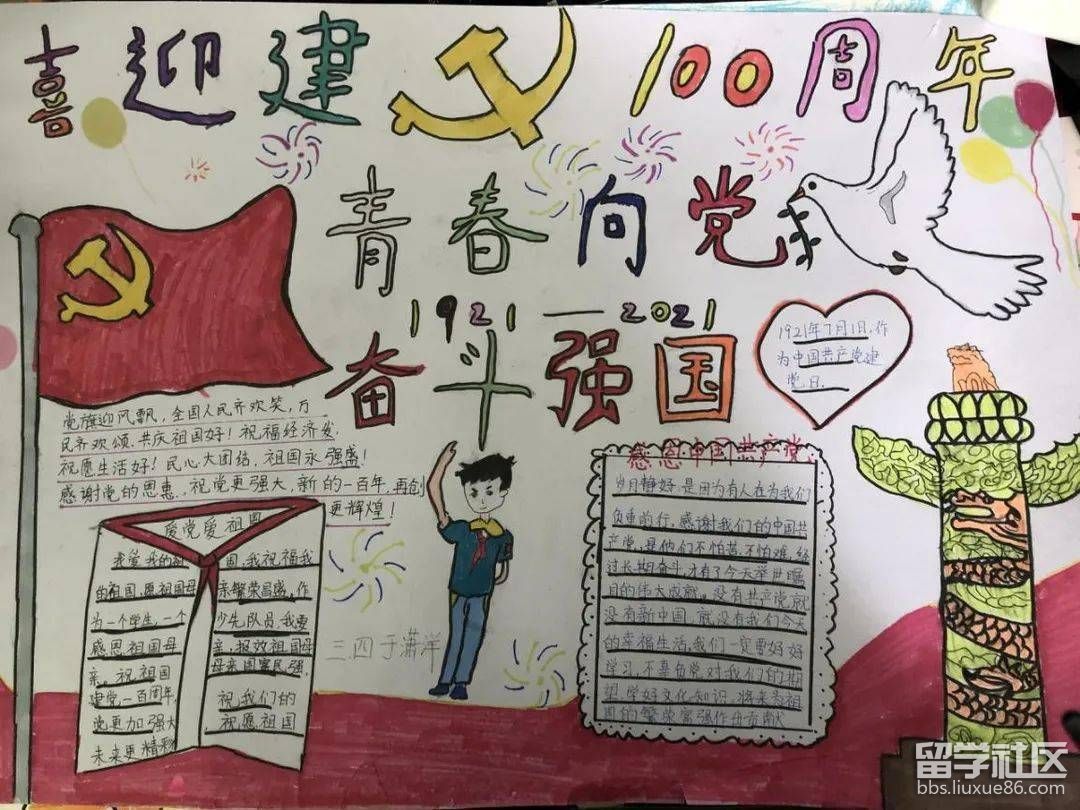 喜迎建 100周年
青春向党
1921—2021
奋斗强国
1921年7月1日,作
为中国共产党建
党日.
党旗迎风飘,全国人民齐欢笑,万
民齐欢颂,共庆祖国好!祝福经济发.
祝愿生活好!民心大团结,祖国永强盛!
感谢党的恩惠,祝党更强大,新的一百年,再创
更辉煌!
爱党爱祖国
我爱我的祖国,我祝福我
的祖国,愿祖国母亲繁荣昌盛,作
为一个学生,一个少先队员,我要
感恩祖国母亲,报效祖国母
亲,祝祖国母亲国富民强.
建党一百周年 祝,我们的
党更加强大 祝愿祖国
未来更精彩
三四于潇洋
感恩中国共产党.
岁月静好,是因为有人在为我们
负重前行,感谢我们的中国共
产党,是他们不怕苦,不怕难,经
过长期奋斗,才有了今天举世瞩
目的伟大成就.没有共产党就
没有新中国,就没有我们今天
的幸福生活,我们一定要好好
学习,不辜负党对我们的期
望,学好文化知识,将来为祖
国的繁荣富强作出贡献
留学社区
bbs.liuxue86.com